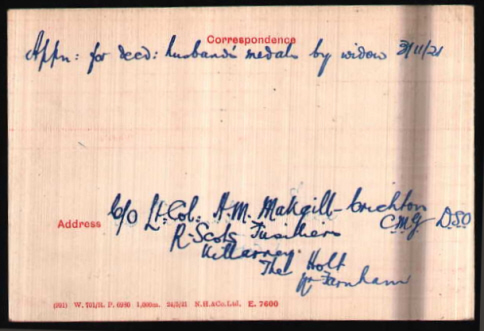 Correspondence
Appn: for decd: husband's medals by widow 3/11/21
Address
c/o Lt: Col: A. M. Makgill-Crichton
C.M.G. D.S.O
R. Scots Fusiliers
Killarney
The Holt
Nr Farnham
(991) W. 791/H. P. 6950 1,000m. 24/3/21 N.H.&Co.Ltd. E. 7600